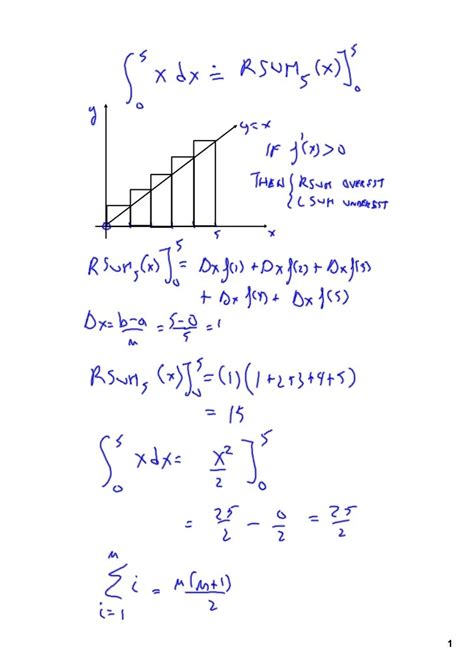 ∫₀⁵ x dx ≐ RSUM₅(x)]₀⁵
y
y=x
IF f'(x)>0
THEN { RSUM OVEREST
{ LSUM UNDEREST
5
x
RSUM₅(x)]₀⁵ = Dx f(1) + Dx f(2) + Dx f(3)
+ Dx f(4) + Dx f(5)
Dx = b-a/n = 5-0/5 = 1
RSUM₅(x)]₀⁵ = (1)(1+2+3+4+5)
= 15
∫₀⁵ x dx = x²/2]₀⁵
= 25/2 - 0/2 = 25/2
∑ᵢ₌₁ⁿ i = n(n+1)/2
1